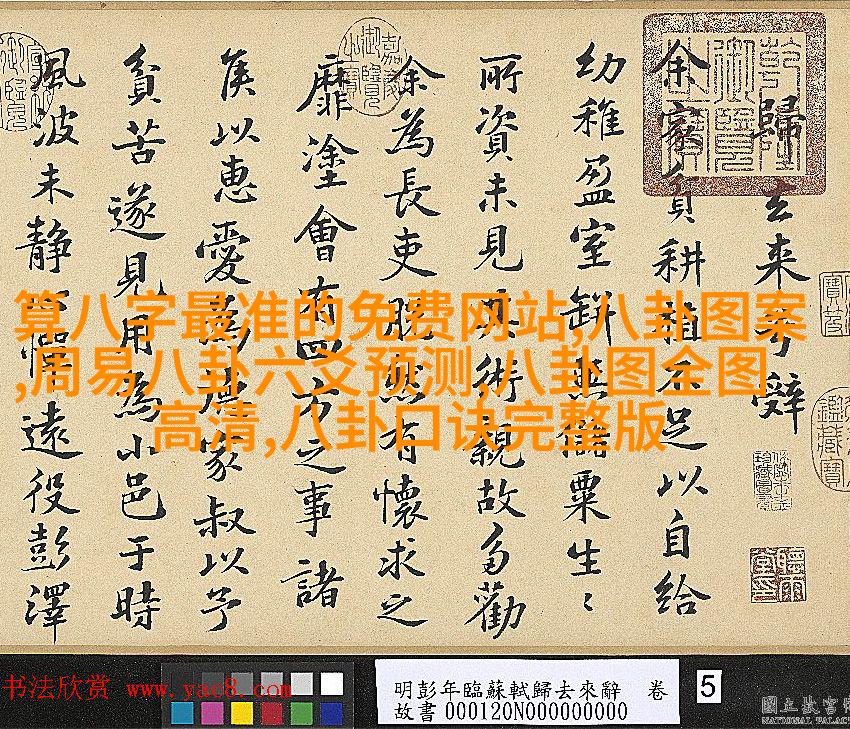 歸去来兮辭
余家貧耕植不足以自給
幼稚盈室缾無儲粟生〻
所資未見其術親故多勸
余為長吏脱然有懷求之
靡塗會有四方之事諸
侯以惠愛為德家叔以予
貧苦遂見用為小邑于時
風波未静心憚遠役彭澤
算八字最准的免费网站,八卦图案
,周易八卦六爻预测,八卦图全图
高清,八卦口诀完整版
书法欣赏 www.yac8.com
明彭年臨蘇軾歸去來辭 卷 5
故書 000120N000000000
國立故宮
NATIONAL PALAC